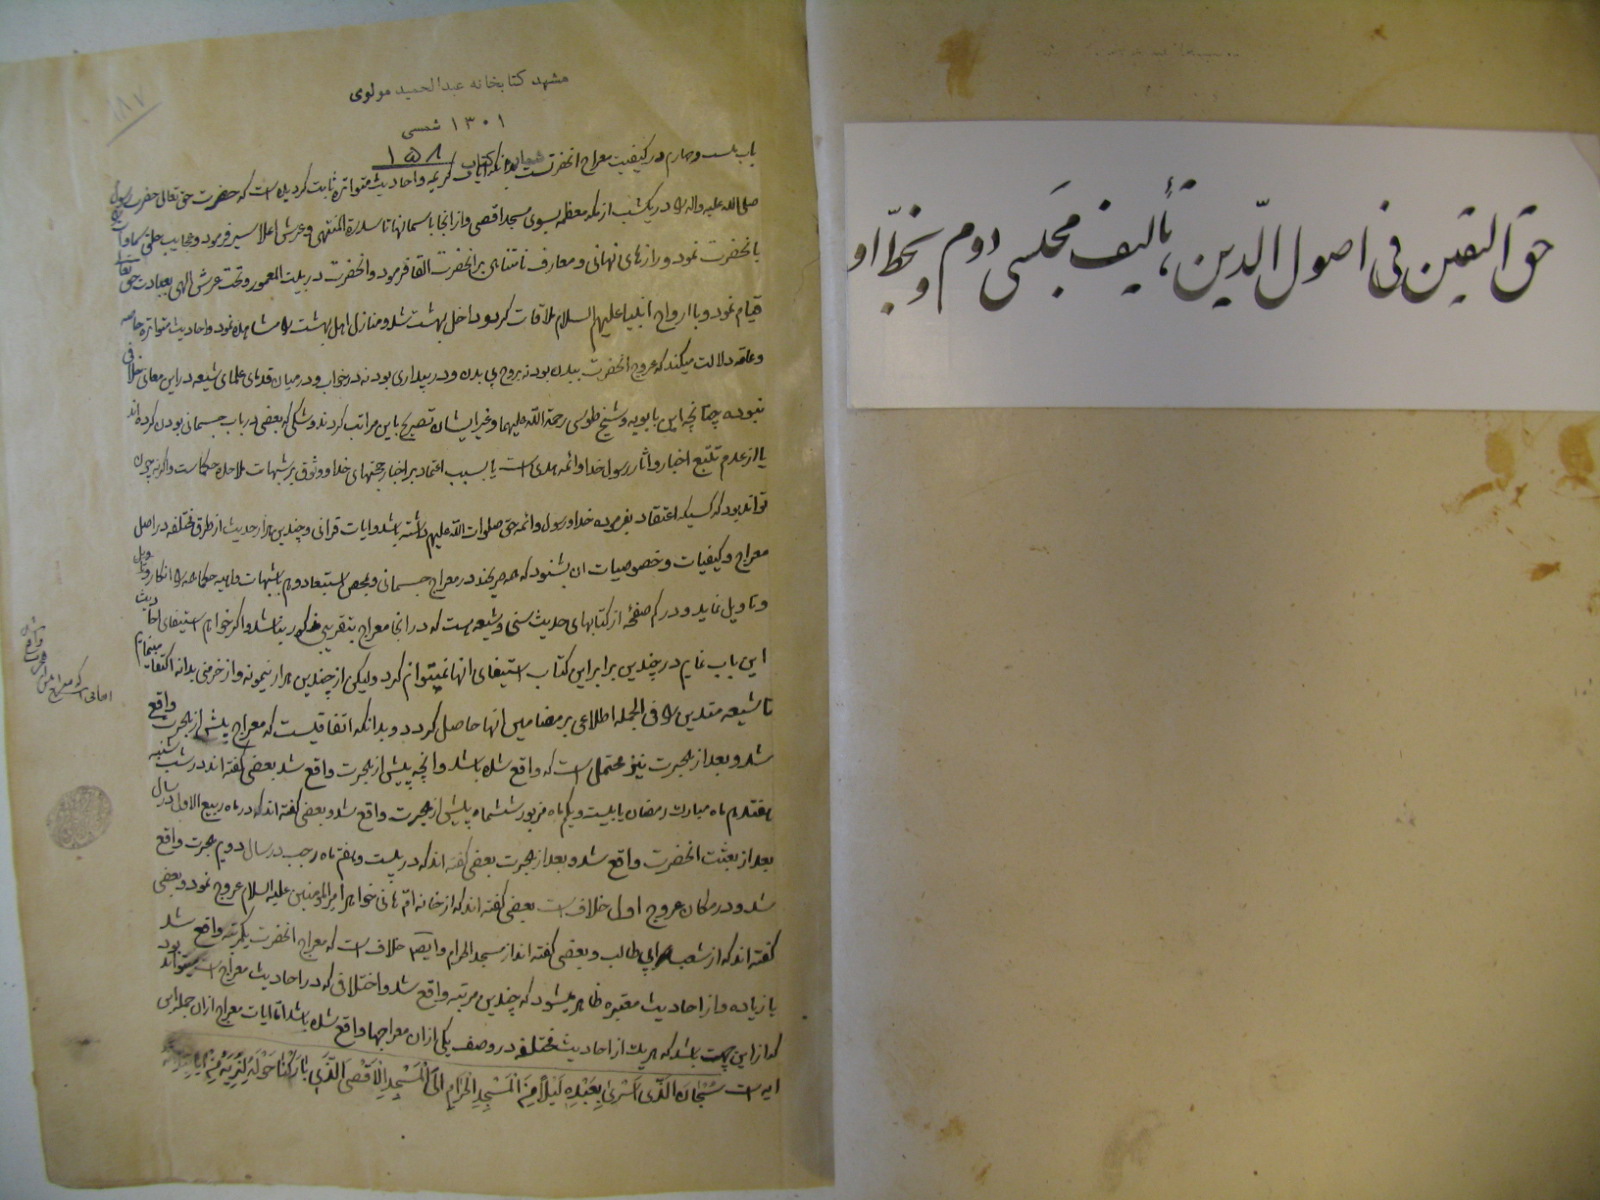 حق الیقین فی اصول الدّین، تألیف مجلسی دوم و بخطّ او
مشهد کتابخانه عبدالحمید مولوی
۱۳۰۱ شمسی
شماره کتاب ۱۵۸
۱۸۷
باب بیست و چهارم در کیفیت معراج انحضرتست بدانکه آیات کریمه و احادیث متواتره ثابت کردیده است که حضرت حق تعالی حضرت رسول
صلی الله علیه واله را در یکشب از مکه معظمه بسوی مسجد اقصی و از انجا باسمانها تا سدرة المنتهی و عرش اعلا سیر فرمود و عجایب خلق سماوات را
بانحضرت نمود و رازهای نهانی و معارف نامتناهی بر انحضرت القا فرمود و انحضرت در بیت المعمور و تحت عرش الهی بعبادت حق تعالی
قیام نمود و با ارواح انبیا علیهم السلام ملاقات کرد و داخل بهشت شد و منازل اهل بهشت را مشاهده نمود و احادیث متواتره خاصه
و عامه دلالت میکند که عروج انحضرت ببدن بود نه بروح بی بدن و در بیداری بود نه در خواب و در میان قدمای علمای شیعه در این معانی خلافی
نبوده چنانچه ابن بابویه و شیخ طوسی رحمة الله علیهما و غیر ایشان تصریح باین مراتب کرده‌اند و شکی که بعضی در باب جسمانی بودن کرده‌اند
یا از عدم تتبع اخبار و اثار رسول خدا و ائمه هدی است یا بسبب اعتماد بر اخبار حجتهای خدا و وثوق بر شبهات ملاحده حکماست و اکرنه چون
تواند بود که کسیکه اعتقاد بفرموده خدا و رسول و ائمه حق صلوات الله علیهم داشته باشد و ایات قرانی و چندین هزار حدیث از طرق مختلفه در اصل
معراج و کیفیات و خصوصیات ان بشنود که همه صریحند در معراج جسمانی و بمحض استبعاد وهم یا شبهات واهیه حکما همه را انکار
و تاویل نماید و در کم صفحهٔ از کتابهای حدیث سنی و شیعه هست که در انجا معراج بتقریبی مذکور نباشد و اکر خواهم استیفای احادیث
این باب نمایم در چندین برابر این کتاب استیفای انها نمیتوانم کرد ولیکن از چندین هزار نمونه و از خرمنی بدانه اکتفا مینمایم
تا شیعه متدین را فی الجمله اطلاعی بر مضامین انها حاصل کردد و بدانکه اتفاقیست که معراج پیش از هجرت واقع
شد و بعد از هجرت نیز محتمل است که واقع شده باشد و انچه پیش از هجرت واقع شد بعضی گفته‌اند در شب شنبه
هفتدهم ماه مبارک رمضان یا بیست و یکم ماه مزبور ششماه پیش از هجرت واقع شد و بعضی گفته‌اند که در ماه ربیع الاول دو سال
بعد از بعثت انحضرت واقع شد و بعد از هجرت بعضی گفته‌اند که در بیست و هفتم ماه رجب در سال دویم هجرت واقع
شد و در مکان عروج اول خلاف است بعضی گفته‌اند که از خانه ام هانی خواهر امیرالمؤمنین علیه السلام عروج نمود و بعضی
گفته‌اند که از شعب ابی طالب و بعضی گفته‌اند از مسجد الحرام و ایضا خلاف است که معراج انحضرت یکمرتبه واقع شد
یا زیاده و از احادیث معتبره ظاهر میشود که چندین مرتبه واقع شد و اختلافی که در احادیث معراج است میتواند بود
که از این جهت باشد که هریک از احادیث مختلفه در وصف یکی از ان معراجها واقع شده باشد اما ایات معراج از ان جمله این
ایه است سُبْحَانَ الَّذِی اَسْرَی بِعَبْدِهِ لَیْلاً مِنَ الْمَسْجِدِ الْحَرَامِ اِلَی الْمَسْجِدِ الاَقْصَی الَّذِی بَارَکْنَا حَوْلَهُ لِنُرِیَهُ مِنْ ایَاتِنَا